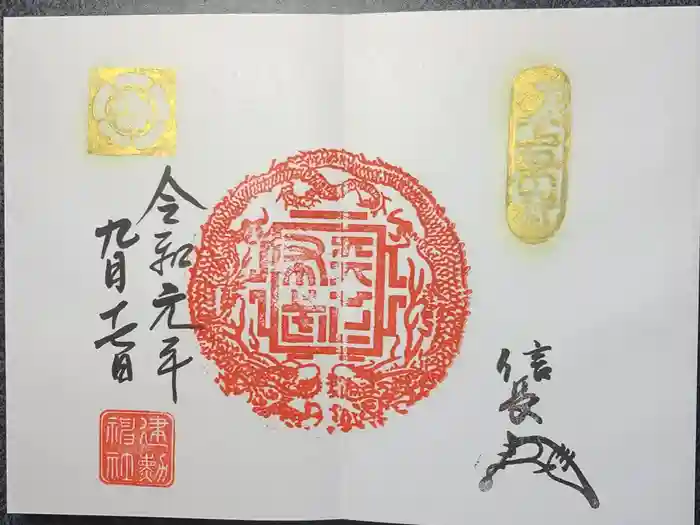 信長
天下
布武
令和元年
九月十七日
建勲
神社